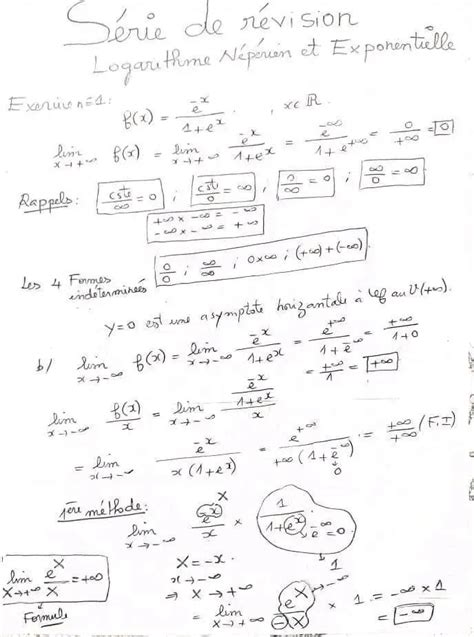 Série de révision
Logarithme Népérien et Exponentielle
Exercice n=1:
f(x) = e^-x / 1+e^x , x∈ℝ.
lim x→+∞ f(x) = lim x→+∞ e^-x / 1+e^x = e^-∞ / 1+e^+∞ = 0/+∞ = 0
Rappels: cste/∞ = 0 ; cste/0 = ∞ ; 0/∞ = 0 ; ∞/0 = ∞
+∞ × -∞ = -∞
-∞ × -∞ = +∞
Les 4 Formes indéterminées 0/0 ; ∞/∞ ; 0×∞ ; (+∞)+(-∞)
y=0 est une asymptote horizontale à 𝒞f au V(+∞).
b/ lim x→-∞ f(x) = lim x→-∞ e^-x / 1+e^x = e^+∞ / 1+e^-∞ = +∞ / 1+0
= +∞/1 = +∞
lim x→-∞ f(x)/x = lim x→-∞ (e^-x / 1+e^x) / x
= lim x→-∞ e^-x / x(1+e^x) = e^+∞ / -∞(1+e^-∞) = +∞/+∞ (F.I)
0
1ère méthode:
lim x→-∞ e^-x / x × 1 / 1+e^x
e^-∞ = 0
1
X = -x
x→-∞
⇒ X→+∞
lim X→+∞ e^X / X = +∞
Formule
= lim X→+∞ e^X / -X × 1 = -∞ × 1
-∞
= -∞